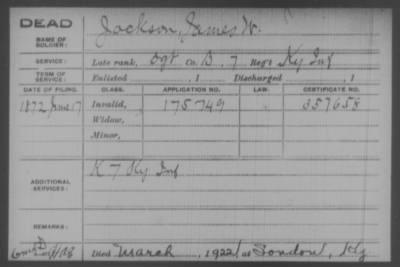 DEAD
NAME OF SOLDIER: Jackson, James W.
SERVICE: Late rank, Sgt Co. B, 7 Reg't Ky Inf
TERM OF SERVICE: Enlisted , 1 Discharged , 1
DATE OF FILING. CLASS. APPLICATION NO. LAW. CERTIFICATE NO.
1872 June 17 Invalid, 175749 357658
Widow,
Minor,
ADDITIONAL SERVICES: K 7 Ky Inf
REMARKS:
Died March , 1922, at London, Ky